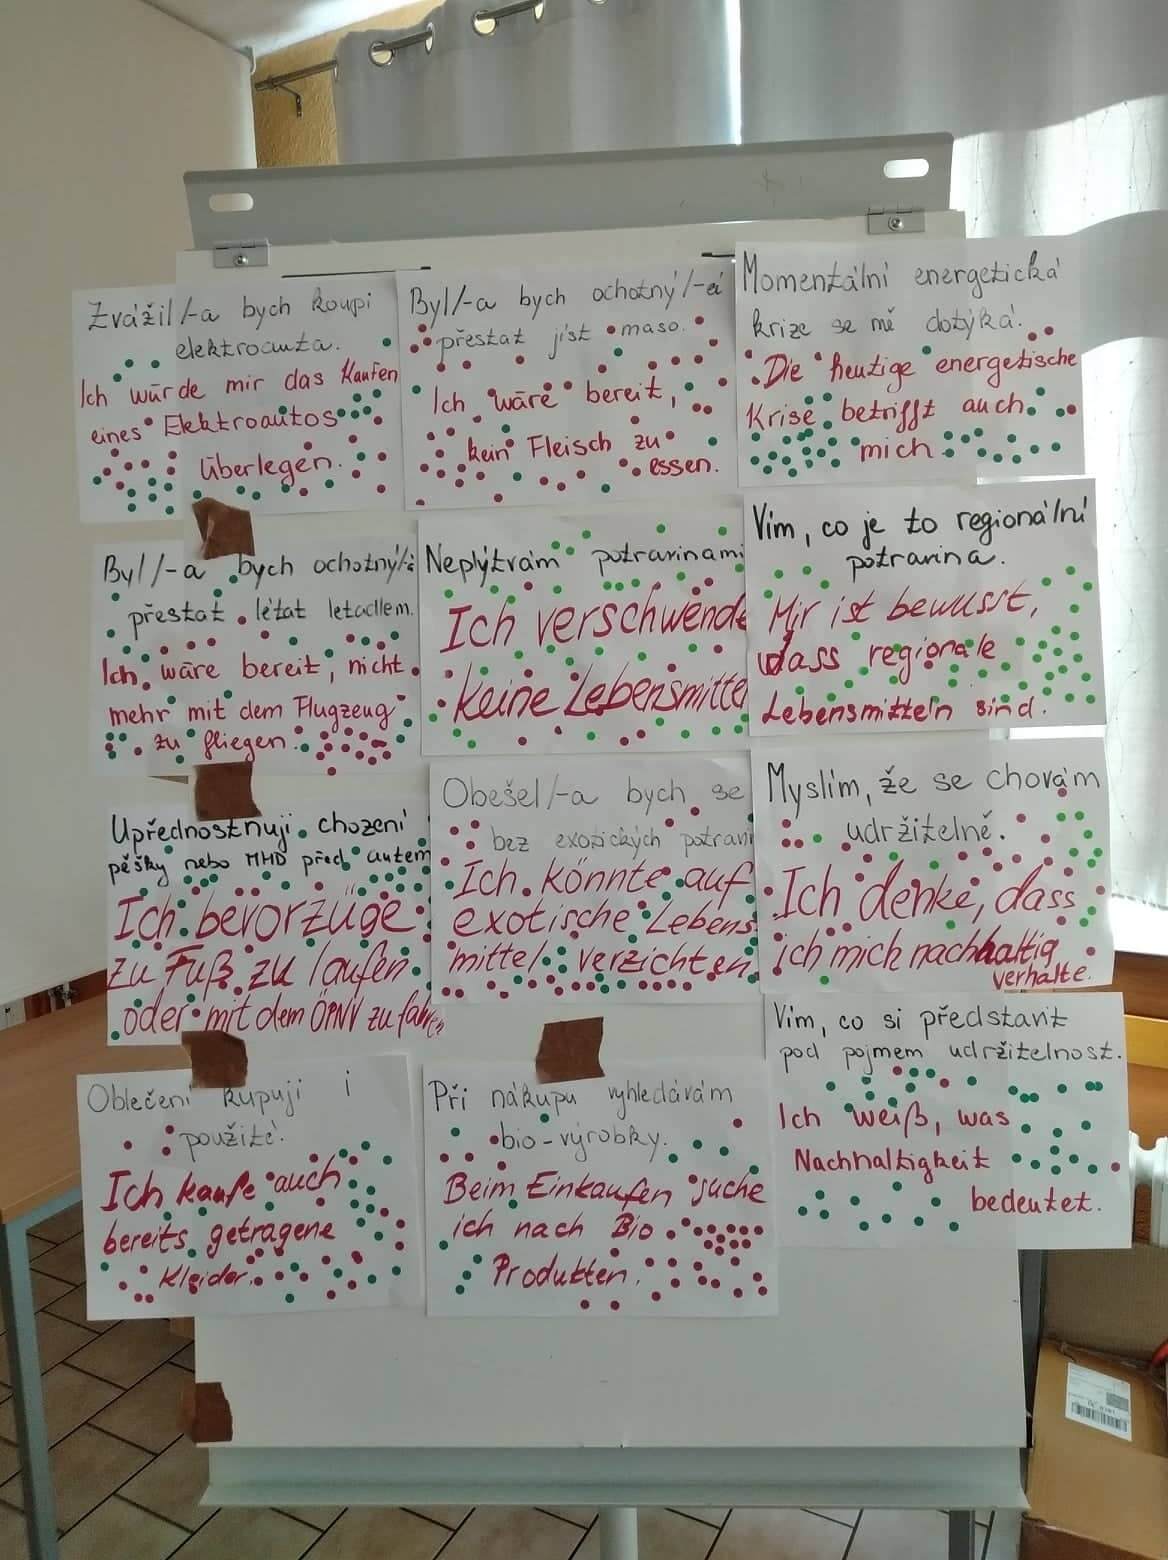 Zvážil/-a bych koupi
elektroauta.
Ich würde mir das Kaufen
eines Elektroautos
überlegen.
Byl/-a bych ochotný/-á
přestat jíst maso.
Ich wäre bereit,
kein Fleisch zu
essen.
Momentální energetická
krize se mě dotýká.
Die heutige energetische
Krise betrifft auch
mich.
Byl/-a bych ochotný/-á
přestat létat letadlem.
Ich wäre bereit, nicht
mehr mit dem Flugzeug
zu fliegen.
Neplýtvám potravinami
Ich verschwende
keine Lebensmittel
Vím, co je to regionální
potravina.
Mir ist bewusst,
dass regionale
Lebensmitteln sind.
Upřednostňuji chození
pěšky nebo MHD před autem
Ich bevorzüge
zu Fuß zu laufen
oder mit dem ÖPNV zu fahren
Obešel/-a bych se
bez exotických potravi
Ich könnte auf
exotische Lebens
mittel verzichten
Myslím, že se chovám
udržitelně.
Ich denke, dass
ich mich nachhaltig
verhalte.
Oblečení kupuji i
použité.
Ich kaufe auch
bereits getragene
Kleider.
Při nákupu vyhledávám
bio-výrobky.
Beim Einkaufen suche
ich nach Bio
Produkten.
Vím, co si představit
pod pojmem udržitelnost.
Ich weiß, was
Nachhaltigkeit
bedeutet.